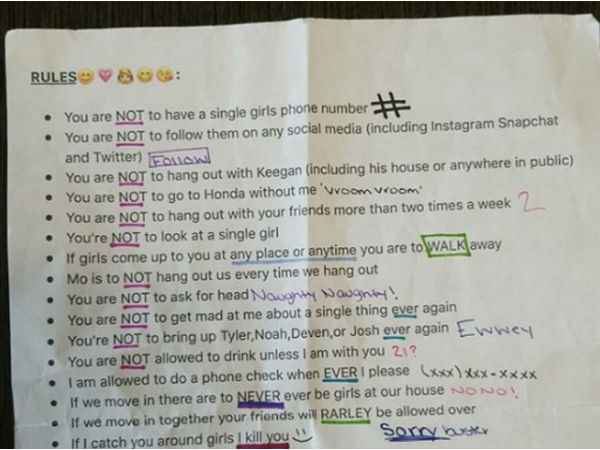 RULES😊💗👸😋😘:
• You are NOT to have a single girls phone number #
• You are NOT to follow them on any social media (including Instagram Snapchat
and Twitter) Follow
• You are NOT to hang out with Keegan (including his house or anywhere in public)
• You are NOT to go to Honda without me 'vroom vroom'
• You are NOT to hang out with your friends more than two times a week 2
• You're NOT to look at a single girl
• If girls come up to you at any place or anytime you are to WALK away
• Mo is to NOT hang out us every time we hang out
• You are NOT to ask for head Naughty Naughty!
• You are NOT to get mad at me about a single thing ever again
• You're NOT to bring up Tyler,Noah,Deven,or Josh ever again Ewwey
• You are NOT allowed to drink unless I am with you 21?
• I am allowed to do a phone check when EVER I please (xxx)xxx-xxxx
• If we move in there are to NEVER ever be girls at our house NONO!
• If we move in together your friends will RARLEY be allowed over
• If I catch you around girls I kill you :) Sorry buster